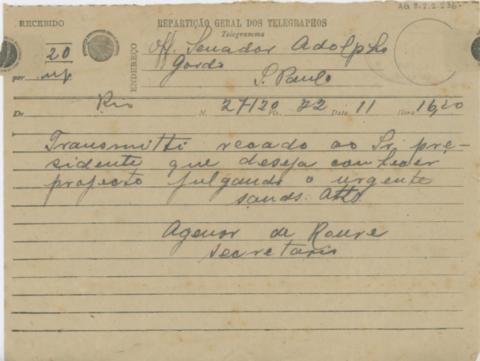 AG 8.2.2.236
RECEBIDO
REPARTIÇÃO GERAL DOS TELEGRAPHOS
Telegramma
20
por
ENDEREÇO
Off. Senador Adolpho
Gordo
S. Paulo
De Rio N. 27120 Pls. 22 Data 11 Hora 16,20
Transmitti recado ao Sr. pre-
sidente que deseja conhecer
projecto julgando o urgente
sauds. Atto
Agenor de Roure
secretario